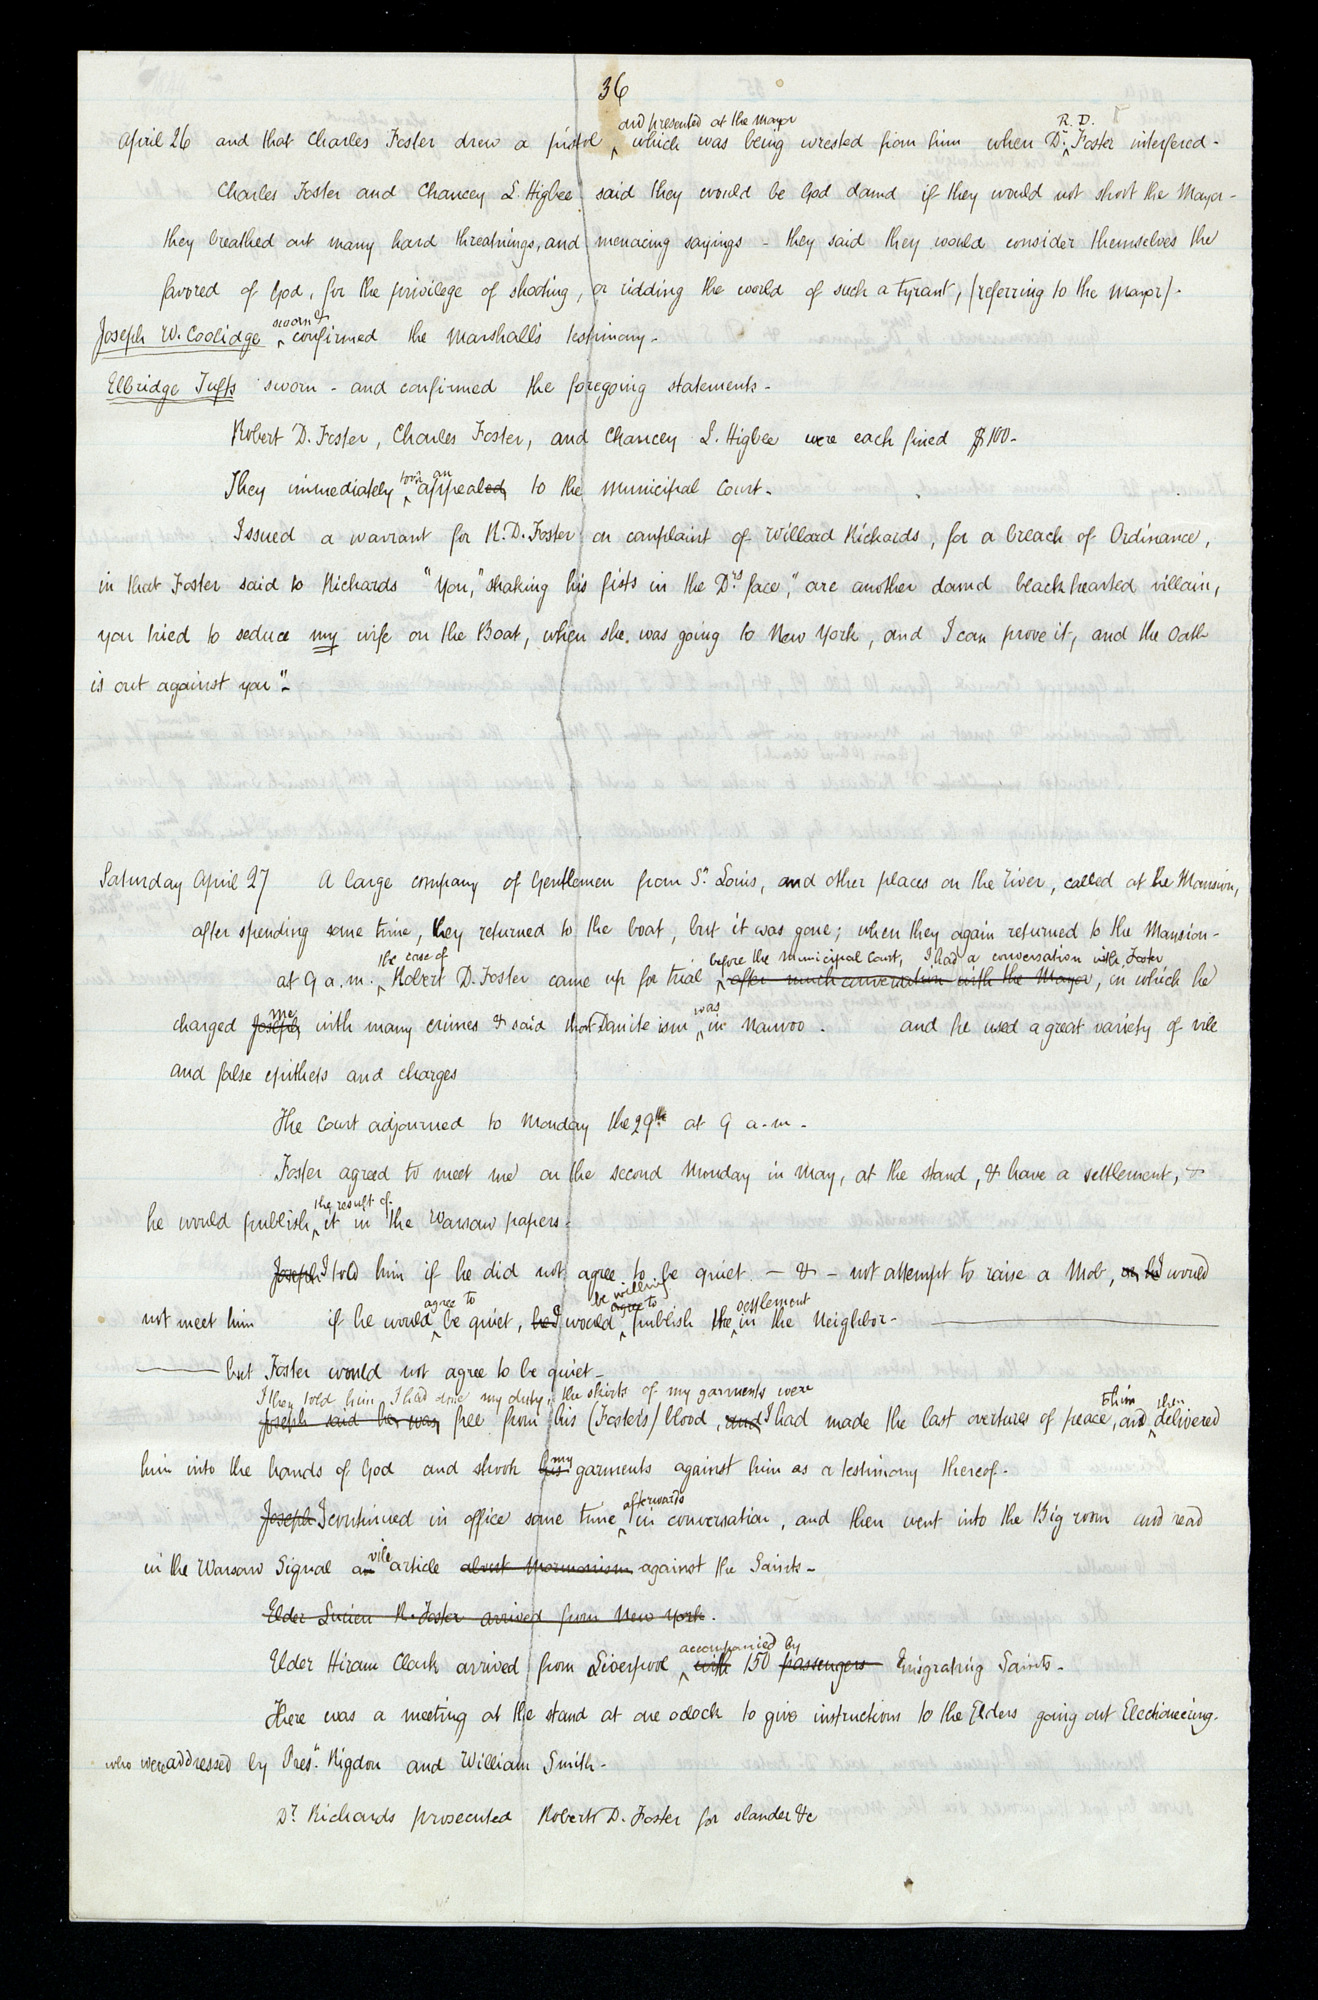 36
and presented at the Mayor R. D.
April 26 and that Charles Foster drew a pistol ‸ which was being wrested from him when Dr. ‸ Foster interfered -
Charles Foster and Chancey L. Higbee said they would be God damd if they would not shoot the Mayor -
they breathed out many hard threatnings, and menacing sayings - they said they would consider themselves the
favored of God, for the privilege of shooting, or ridding the world of such a Tyrant, (referring to the Mayor).
sworn &
Joseph W. Coolidge ‸ confirmed the Marshall's testimony -
Elbridge Tufts sworn - and confirmed the foregoing statements -
Robert D. Foster, Charles Foster, and Chancey L. Higbee were each fined $100 -
took an
They immediately ‸ appealed to the Municipal Court -
Issued a warrant for R. D. Foster on complaint of Willard Richards, for a breach of Ordinance,
in that Foster said to Richards "You," shaking his fists in the Drs. face," are another damd black hearted villain,
you tried to seduce my wife on the Boat, when she was going to New York, and I can prove it, and the oath
is out against you" -
Saturday April 27 A large company of Gentlemen from St. Louis, and other places on the river, called at the Mansion,
after spending some time, they returned to the boat, but it was gone; when they again returned to the Mansion -
the case of before the Municipal Court, I had a conversation with Foster
at 9 a.m. ‸ Robert D. Foster came up for trial ‸ after much conversation with the Mayor, in which he
me was
charged Joseph with many crimes & said that Danite ism ‸ in Nauvoo. and he used a great variety of vile
and false epithets and charges
The Court adjourned to Monday the 29th at 9 a.m. -
Foster agreed to meet me on the second Monday in May, at the stand, & have a settlement, &
the result of
he would publish ‸ it in the Warsaw papers -
Joseph I told him if he did not agree to be quiet - & - not attempt to raise a Mob, he I would
be willing
agree to agree to settlement
not meet him if he would ‸ be quiet, he I would ‸ publish the ‸ in the Neighbor -
but Foster would not agree to be quiet -
I then told him I had done my duty; the skirts of my garments were
to him then
Joseph said he was free from his (Foster's) blood, and I had made the last overtures of peace, and ‸ delivered
my
him into the hands of God and shook his garments against him as a testimony thereof -
afterwards
Joseph I continued in office some time ‸ in conversation, and then went into the Big room and read
vile
in the Warsaw Signal an article about Mormonism against the Saints -
Elder Lucien R. Foster arrived from New York.
accompanied by
Elder Hiram Clark arrived from Liverpool ‸ with 150 passengers Emigrating Saints -
There was a meeting at the stand at one oclock to give instructions to the Elders going out Electioneering.
who were addressed by Prest. Rigdon and William Smith -
Dr. Richards prosecuted Robert D. Foster for slander &c